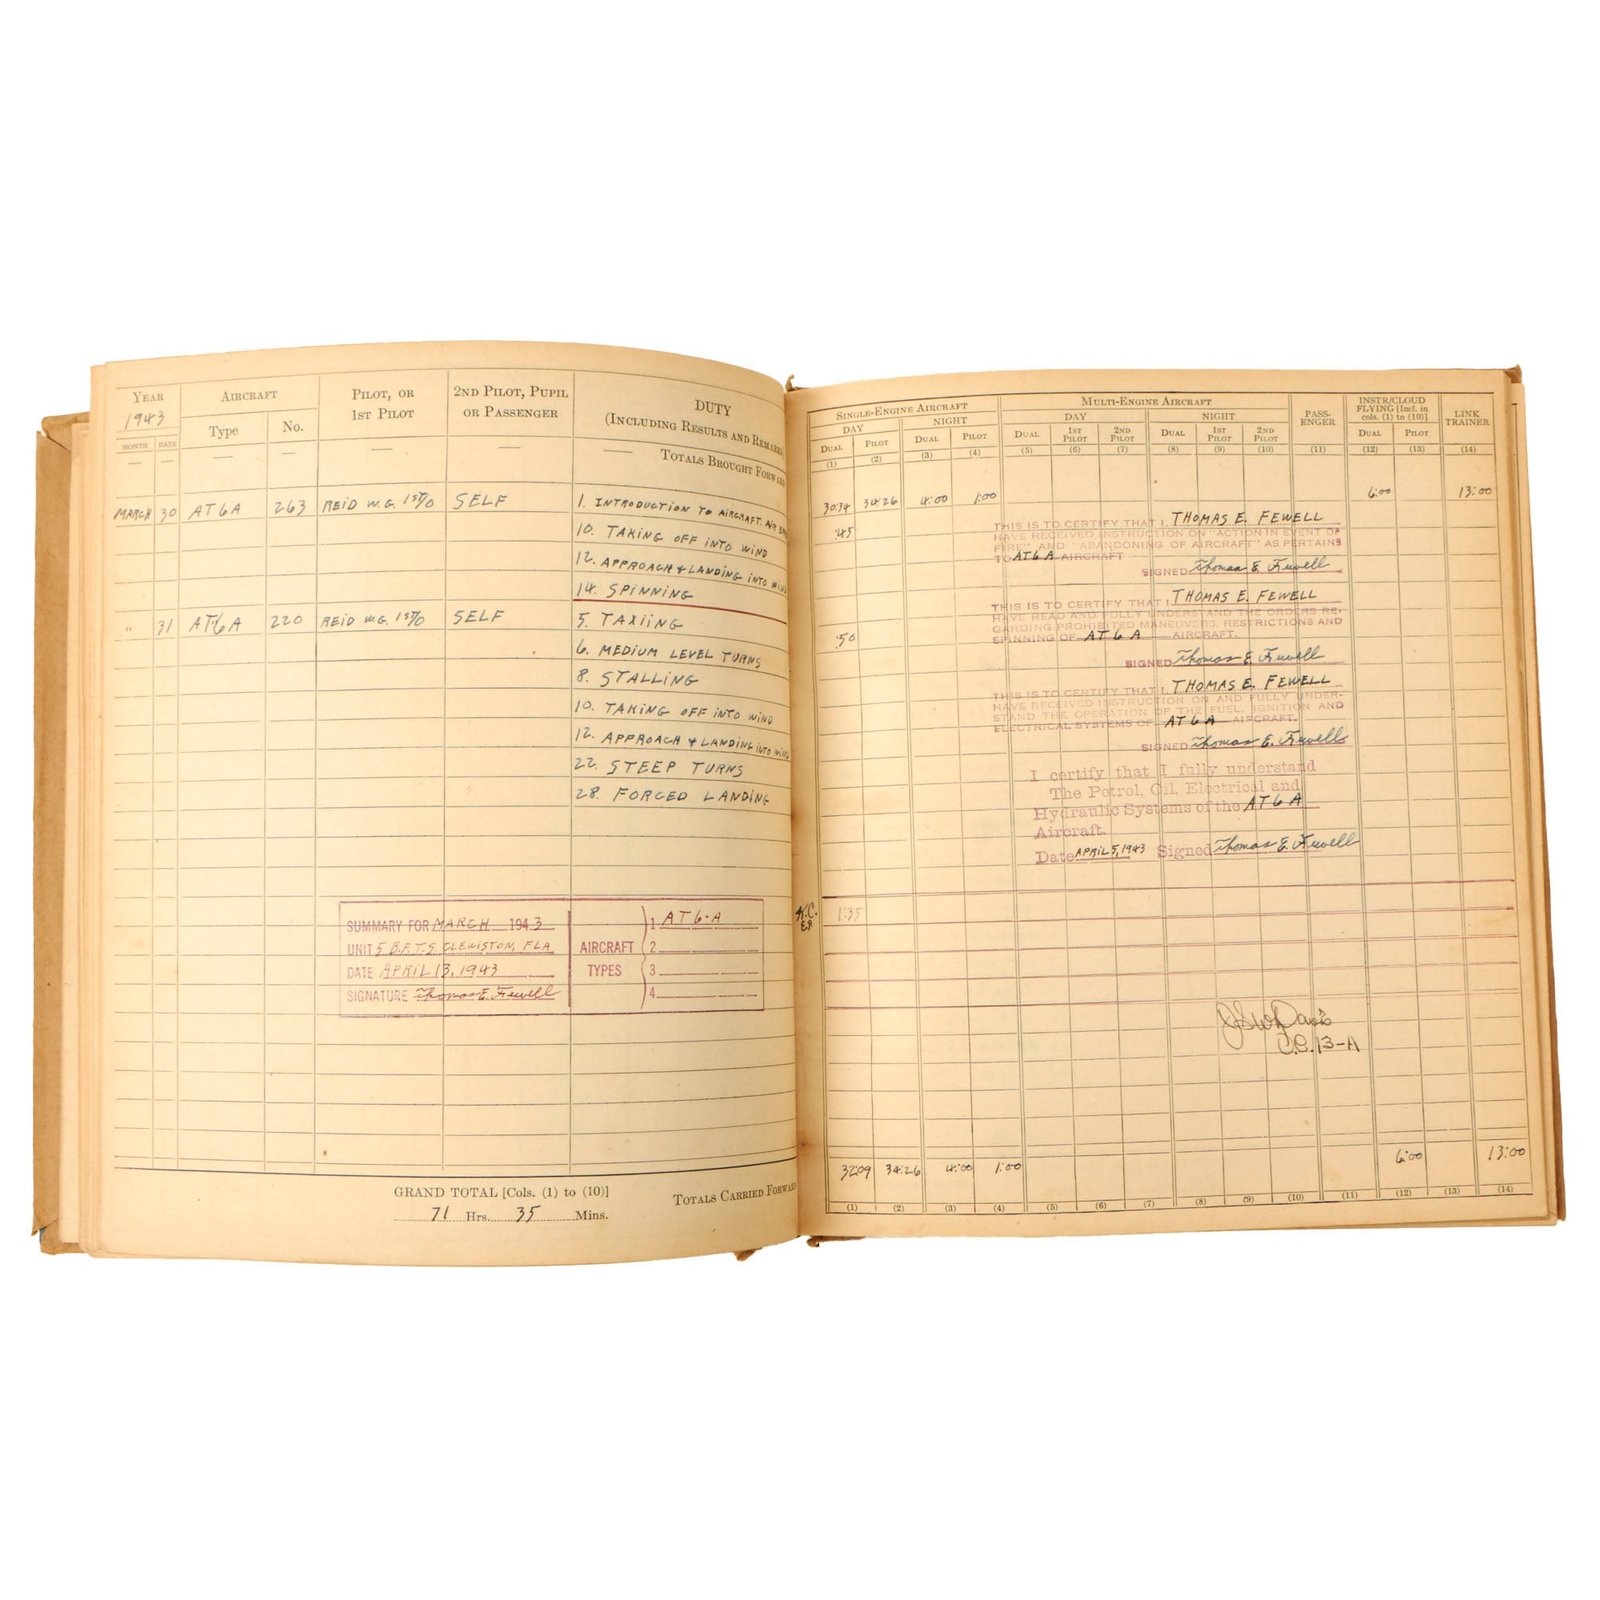 YEAR AIRCRAFT PILOT, OR 1ST PILOT 2ND PILOT, PUPIL OR PASSENGER DUTY
1943 Type No. (INCLUDING RESULTS AND REMARKS
MONTH DATE
— — — — — TOTALS BROUGHT FORWARD
MARCH 30 AT6A 263 REID W.G. 1ST/O SELF 1. INTRODUCTION TO AIRCRAFT. AIR
10. TAKING OFF INTO WIND
12. APPROACH & LANDING INTO WIND
14. SPINNING
" 31 AT6A 220 REID W.G. 1ST/O SELF 5. TAXIING
6. MEDIUM LEVEL TURNS
8. STALLING
10. TAKING OFF INTO WIND
12. APPROACH & LANDING INTO WIND
22. STEEP TURNS
28. FORCED LANDING
SUMMARY FOR MARCH 1943 1 AT6-A
UNIT 5 B.F.T.S. CLEWISTON, FLA AIRCRAFT 2
DATE APRIL 13, 1943 TYPES 3
SIGNATURE Thomas E. Fewell 4
GRAND TOTAL [Cols. (1) to (10)] TOTALS CARRIED FORWARD
71 Hrs. 35 Mins.
SINGLE-ENGINE AIRCRAFT MULTI-ENGINE AIRCRAFT PASS-ENGER INSTR/CLOUD FLYING [Incl. in cols. (1) to (10)] LINK TRAINER
DAY NIGHT DAY NIGHT
DUAL PILOT DUAL PILOT DUAL 1ST PILOT 2ND PILOT DUAL 1ST PILOT 2ND PILOT DUAL PILOT
(1) (2) (3) (4) (5) (6) (7) (8) (9) (10) (11) (12) (13) (14)
30:34 34:26 4:00 1:00 6:00 13:00
:45
THIS IS TO CERTIFY THAT I, THOMAS E. FEWELL
HAVE RECEIVED INSTRUCTION ON "ACTION IN EVENT OF
FIRE" AND "ABANDONING OF AIRCRAFT" AS PERTAINS
TO AT6A AIRCRAFT
SIGNED Thomas E. Fewell
THIS IS TO CERTIFY THAT I, THOMAS E. FEWELL
HAVE READ AND FULLY UNDERSTAND THE ORDERS RE-
GARDING PROHIBITED MANEUVERS, RESTRICTIONS AND
SPINNING OF AT6A AIRCRAFT.
:50
SIGNED Thomas E. Fewell
THIS IS TO CERTIFY THAT I, THOMAS E. FEWELL
HAVE RECEIVED INSTRUCTION ON AND FULLY UNDER-
STAND THE OPERATION OF THE FUEL, IGNITION AND
ELECTRICAL SYSTEMS OF AT6A AIRCRAFT.
SIGNED Thomas E. Fewell
I certify that I fully understand
The Petrol, Oil, Electrical and
Hydraulic Systems of the AT6A
Aircraft.
Date APRIL 5, 1943 Signed Thomas E. Fewell
1:35
Davis
C.G. 13-A
32:09 34:26 4:00 1:00 6:00 13:00
(1) (2) (3) (4) (5) (6) (7) (8) (9) (10) (11) (12) (13) (14)